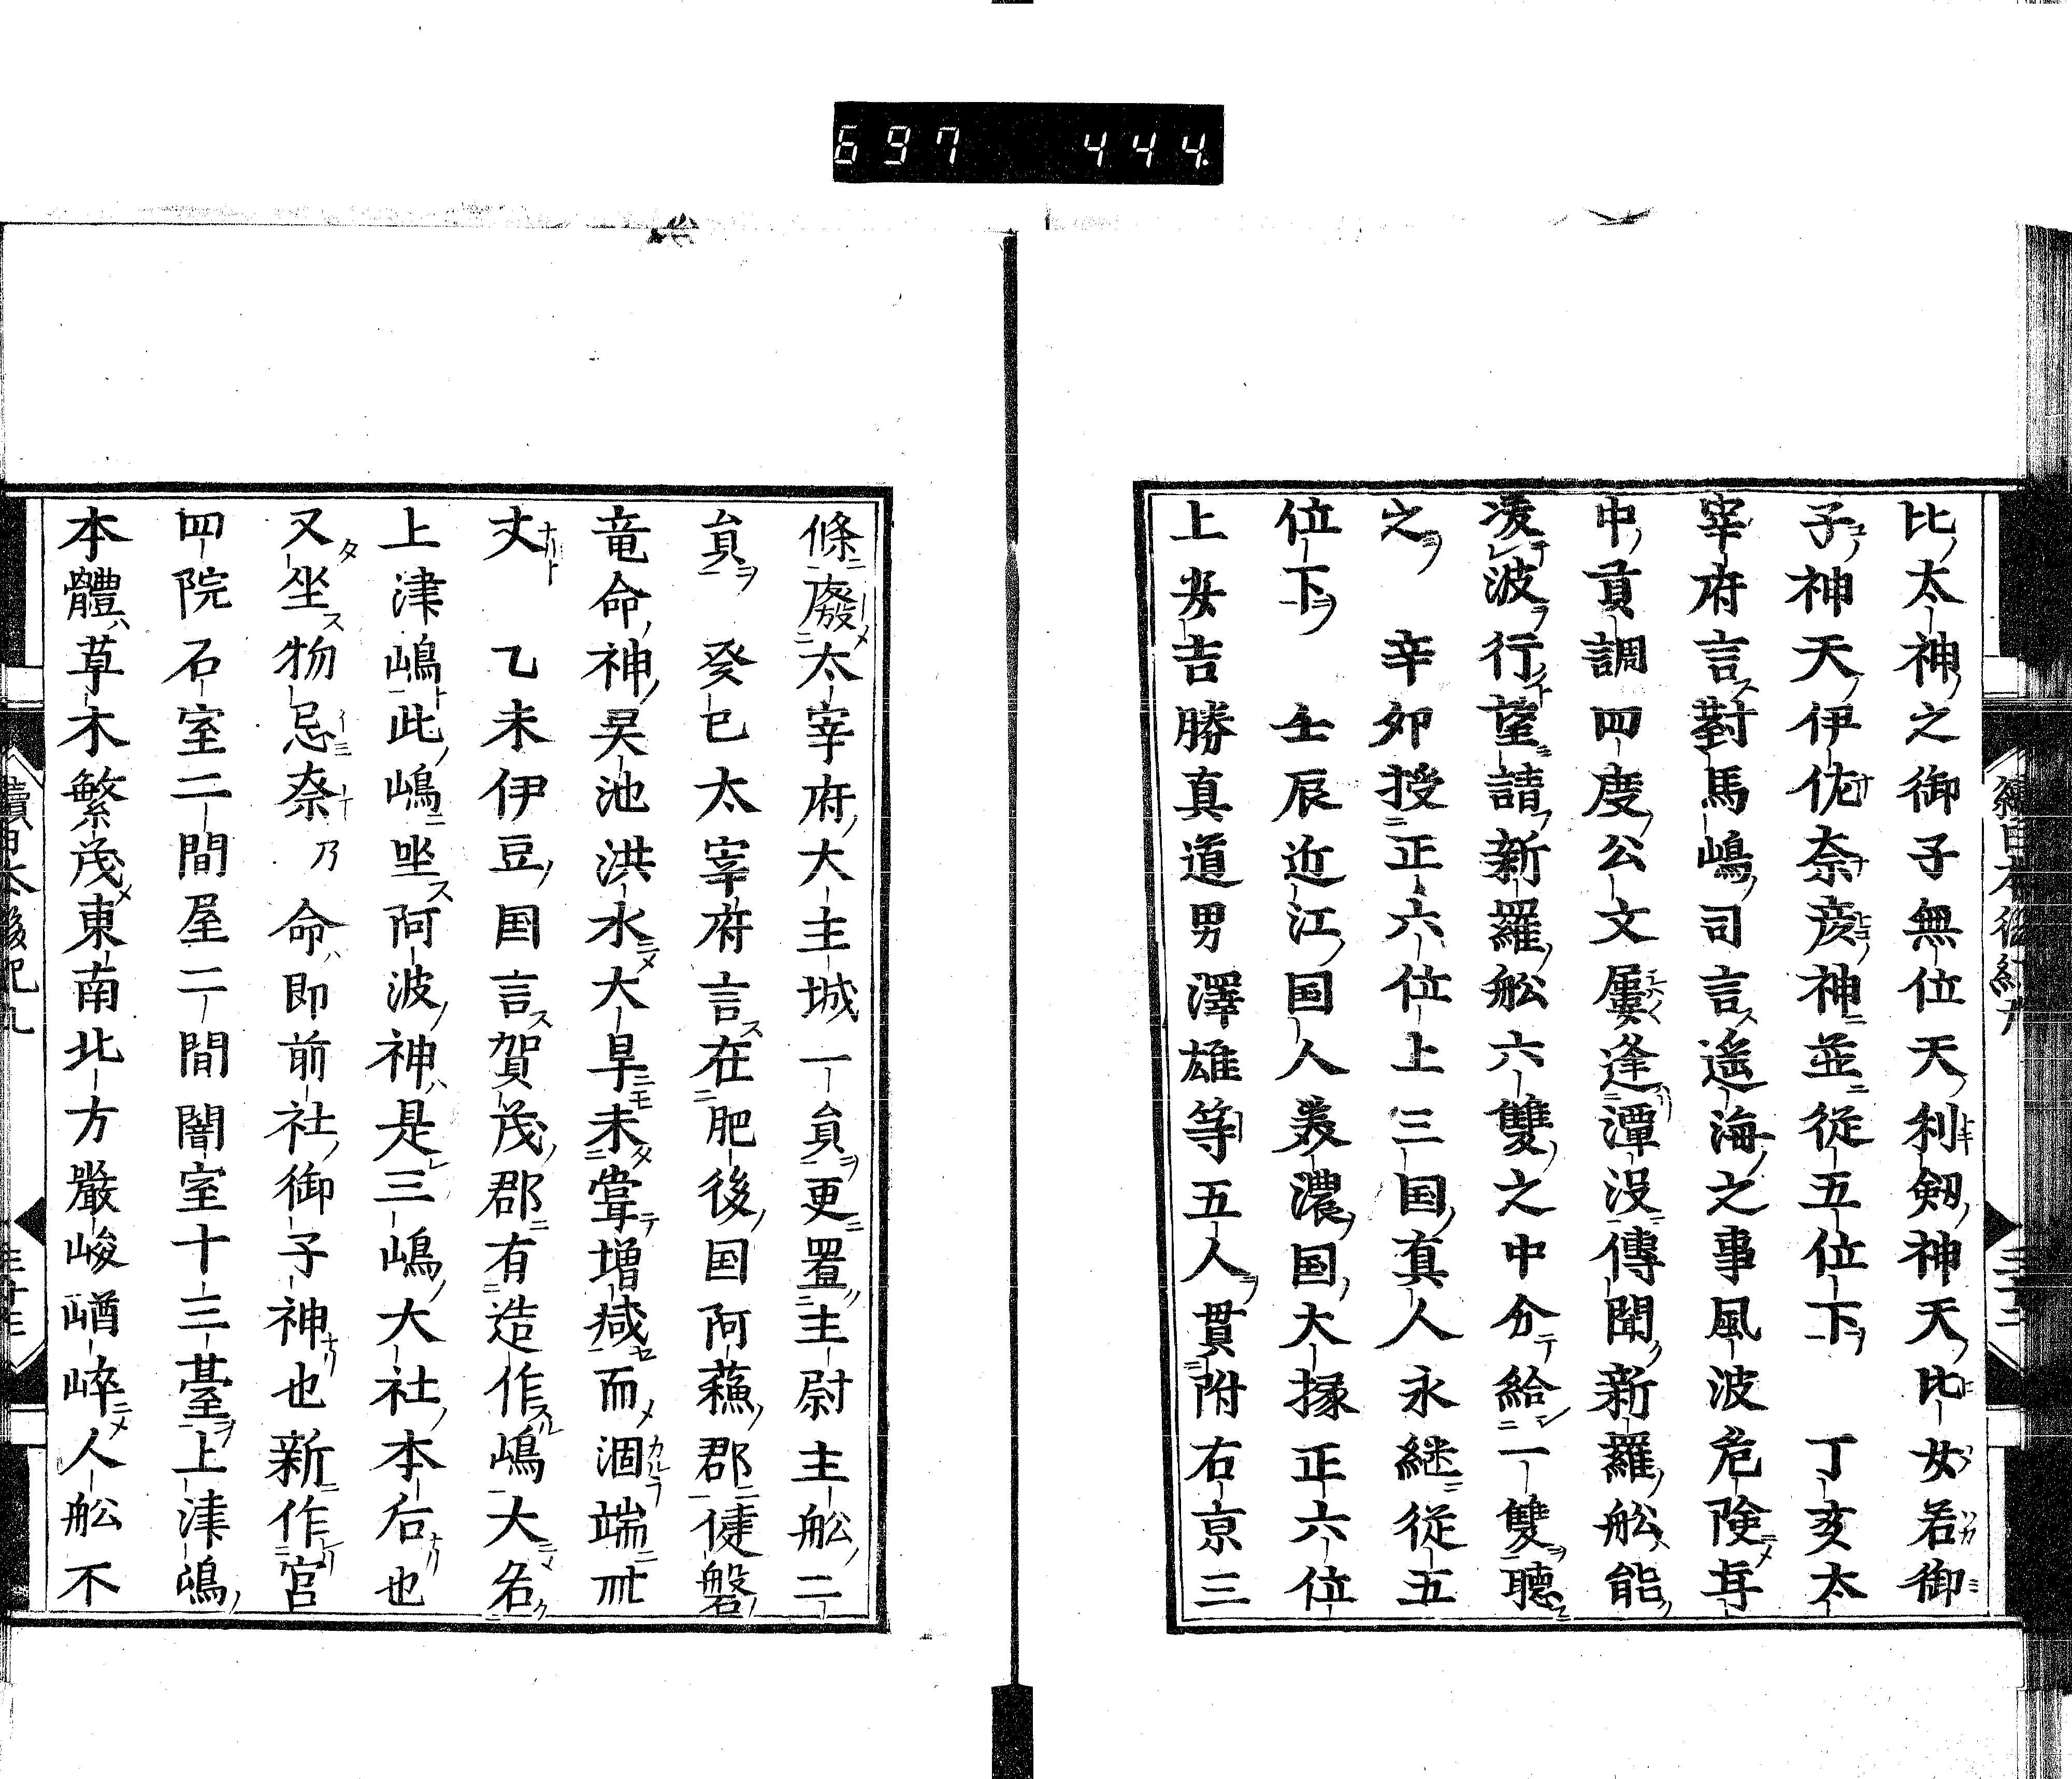 697 444
比太神之御子無位天利剱神天比女若御
子神天伊佐奈彦神並従五位下 丁亥太
宰府言對馬嶋司言遥海之事風波危険年
中貢調四度公文屢逢漂没傳聞新羅舩能
凌波行望請新羅舩六雙之中分給一雙聴
之 辛卯授正六位上三国真人永継従五
位下 壬辰近江国人美濃国大掾正六位
上安吉勝真道男澤雄等五人貫附右京三
條廢太宰府大主城一員更置主尉主舩二
員 癸巳太宰府言在肥後国阿蘓郡健磐
竜命神灵池洪水大旱未甞増减而涸端卌
丈 乙未伊豆国言賀茂郡有造作嶋大名
上津嶋此嶋坐阿波神是三嶋大社本后也
又坐物忌奈乃命即前社御子神也新作宮
四院石室二間屋二間闇室十三臺上津嶋
本體草木繁茂東南北方嚴峻嶒崪人舩不